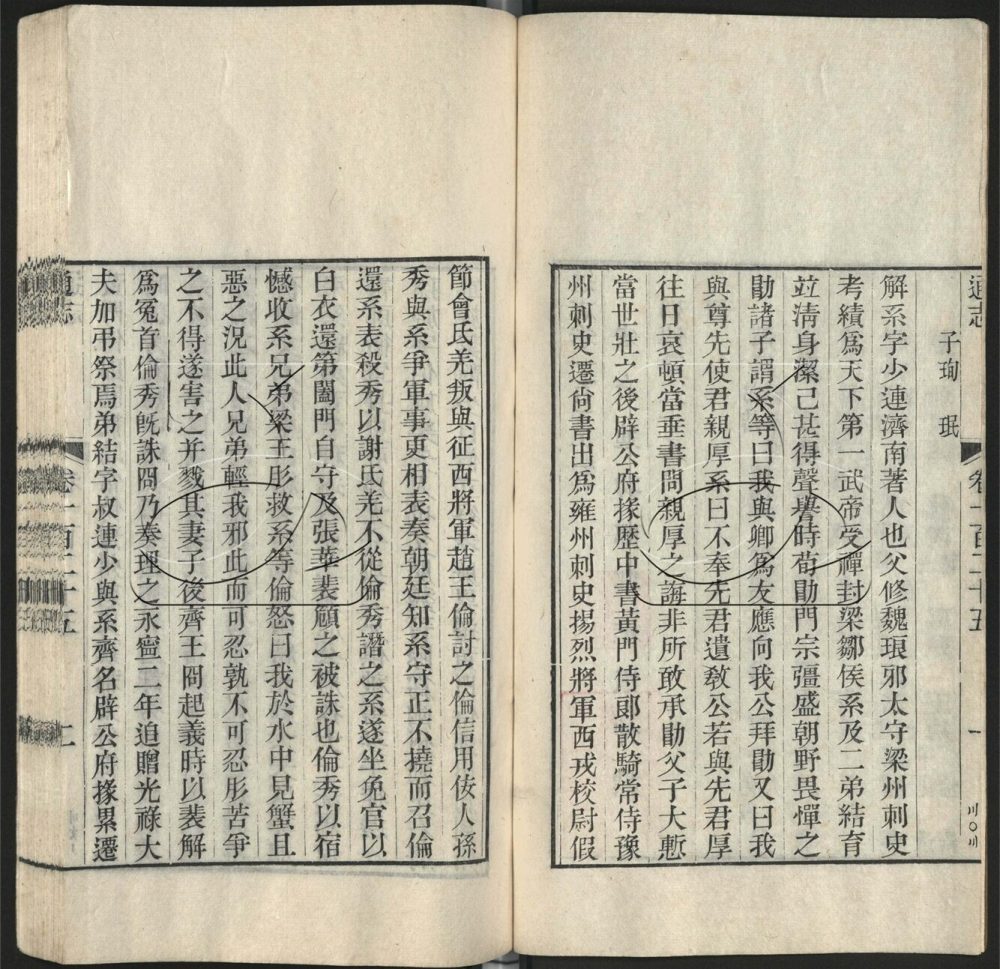 通志
卷一百二十五
一
川〇川
子珣　珉
解系字少連濟南著人也父修魏琅邪太守梁州刺史
考績爲天下第一武帝受禪封梁鄒侯系及二弟結育
竝淸身潔己甚得聲譽時荀勖門宗彊盛朝野畏憚之
勖諸子謂系等曰我與卿爲友應向我公拜勖又曰我
與尊先使君親厚系曰不奉先君遺敎公若與先君厚
往日哀頓當垂書問親厚之誨非所敢承勖父子大慙
當世壯之後辟公府掾歷中書黃門侍郞散騎常侍豫
州刺史遷尙書出爲雍州刺史揚烈將軍西戎校尉假
節會氐羌叛與征西將軍趙王倫討之倫信用佞人孫
秀與系爭軍事更相表奏朝廷知系守正不撓而召倫
還系表殺秀以謝氐羌不從倫秀譖之系遂坐免官以
白衣還第闔門自守及張華裴頠之被誅也倫秀以宿
憾收系兄弟梁王肜救系等倫怒曰我於水中見蟹且
惡之況此人兄弟輕我邪此而可忍孰不可忍肜苦爭
之不得遂害之并戮其妻子後齊王冏起義時以裴解
爲冤首倫秀旣誅冏乃奏理之永寧二年追贈光祿大
夫加弔祭焉弟結字叔連少與系齊名辟公府掾累遷
通志
卷一百二十五